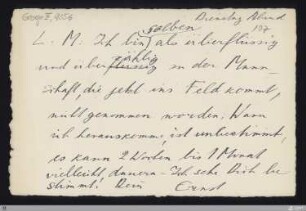 George II, 4156
Dienstag Abend
soeben
L. M. Ich bin als überflüssig
und überzählig in der Mann-
schaft, die jetzt ins Feld kommt,
nicht genommen worden. Wann
ich herauskomme, ist unbestimmt,
es kann 2 Wochen bis 1 Monat
vielleicht, dauern. Ich sehe Dich be
stimmt! Dein Ernst